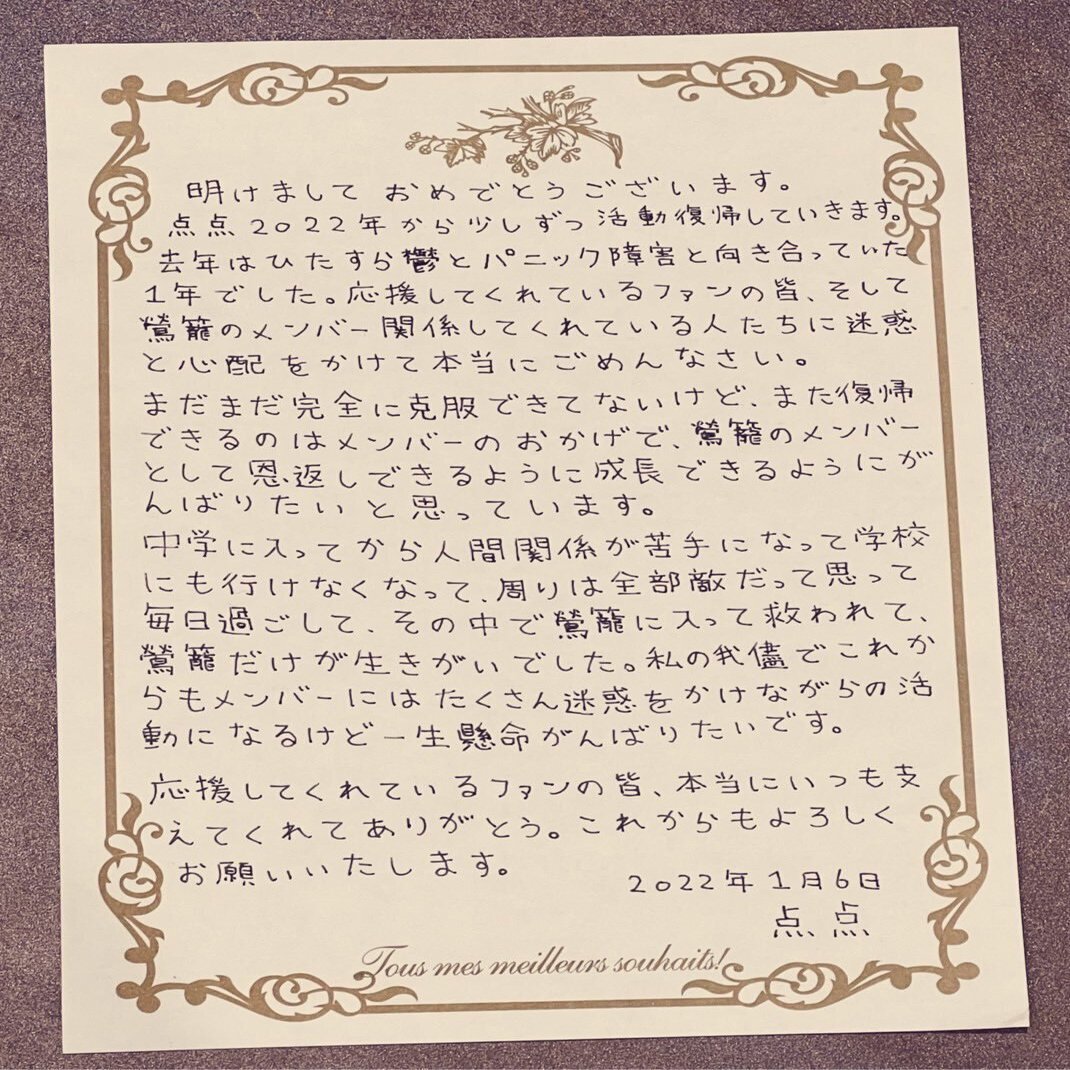 明けまして おめでとうございます。
点点2022年から少しずつ活動復帰していきます。
去年はひたすら鬱とパニック障害と向き合っていた
1年でした。応援してくれているファンの皆、そして
鶯籠のメンバー関係してくれている人たちに迷惑
と心配をかけて本当にごめんなさい。
まだまだ完全に克服できてないけど、また復帰
できるのはメンバーのおかげで、鶯籠のメンバー
として恩返しできるように成長できるようにが
んばりたいと思っています。
中学に入ってから人間関係が苦手になって学校
にも行けなくなって、周りは全部敵だって思って
毎日過ごして、その中で鶯籠に入って救われて、
鶯籠だけが生きがいでした。私の我儘でこれか
らもメンバーにはたくさん迷惑をかけながらの活
動になるけど一生懸命がんばりたいです。
応援してくれているファンの皆、本当にいつも支
えてくれてありがとう。これからもよろしく
お願いいたします。
2022年1月6日
点点
Tous mes meilleurs souhaits!